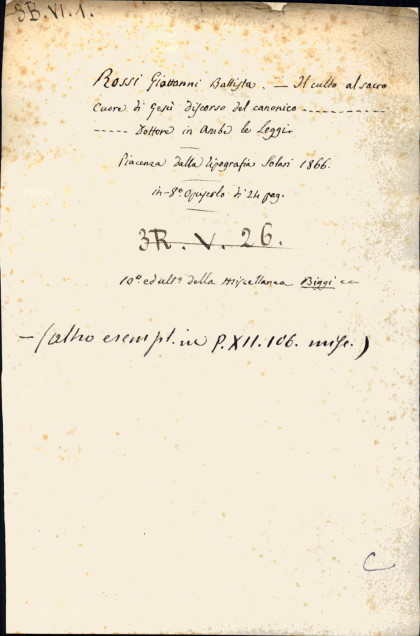 3B.VI.1.
Rossi Giovanni Battista. — Il culto al sacro
Cuore di Gesù discorso del canonico -----------
----- Dottore in Ambe le Leggi.
Piacenza dalla tipografia Solari 1866.
in-8º Opuscolo di 24 pag.
3R. V. 26.
10º ed ultº della miscellanea Biggi
— (altro esempl. in P.XII.106. misc.)
C